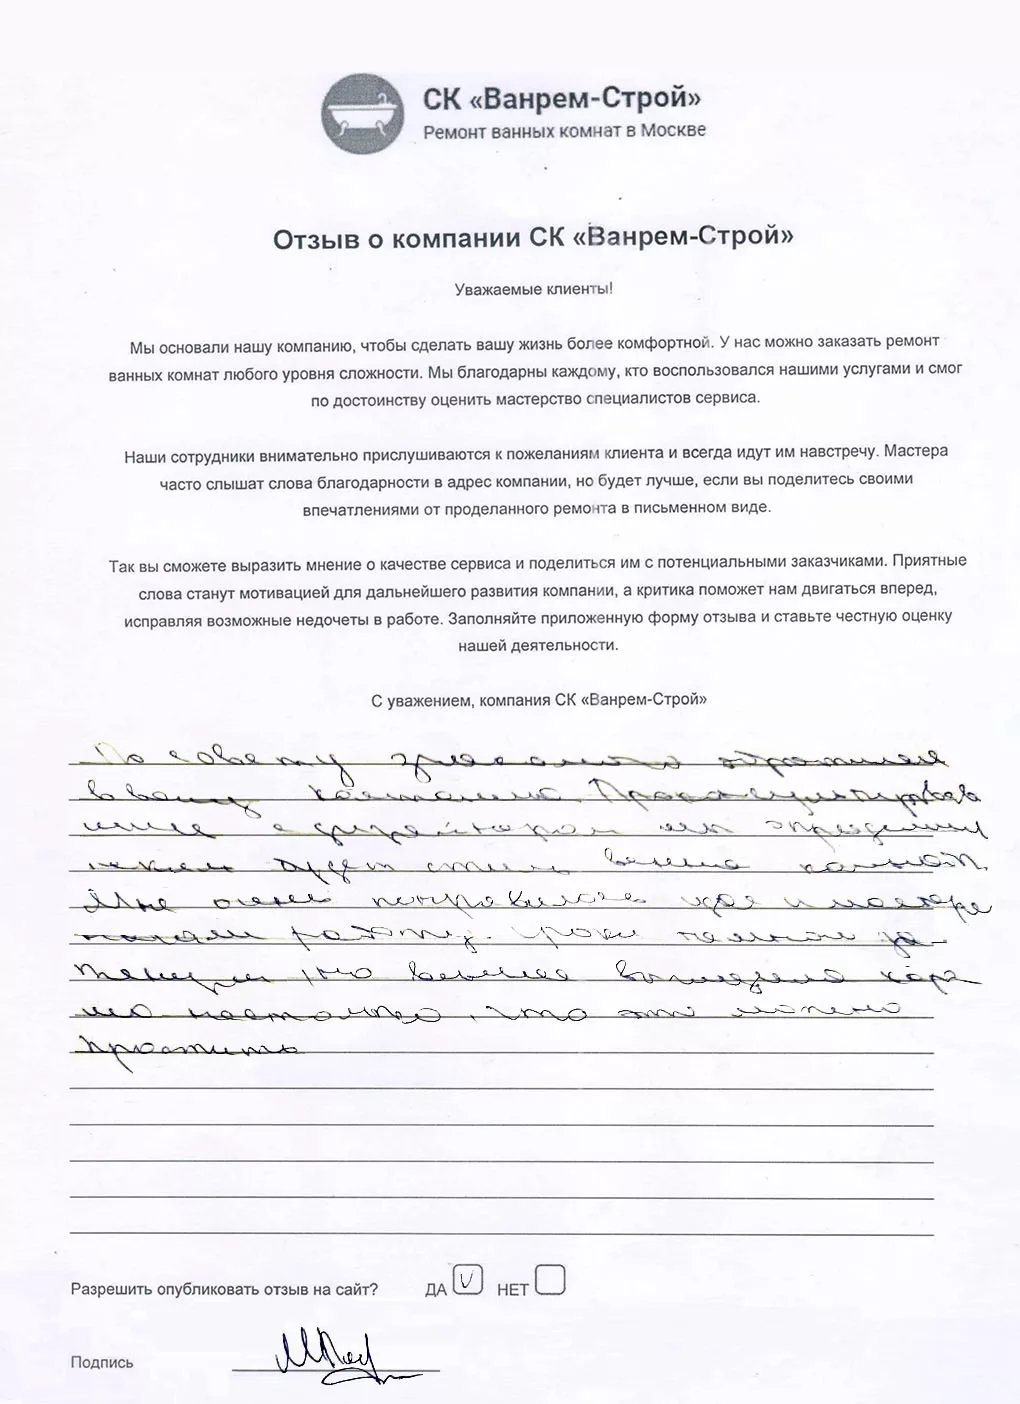 СК «Ванрем-Строй»
Ремонт ванных комнат в Москве
Отзыв о компании СК «Ванрем-Строй»
Уважаемые клиенты!
Мы основали нашу компанию, чтобы сделать вашу жизнь более комфортной. У нас можно заказать ремонт
ванных комнат любого уровня сложности. Мы благодарны каждому, кто воспользовался нашими услугами и смог
по достоинству оценить мастерство специалистов сервиса.
Наши сотрудники внимательно прислушиваются к пожеланиям клиента и всегда идут им навстречу. Мастера
часто слышат слова благодарности в адрес компании, но будет лучше, если вы поделитесь своими
впечатлениями от проделанного ремонта в письменном виде.
Так вы сможете выразить мнение о качестве сервиса и поделиться им с потенциальными заказчиками. Приятные
слова станут мотивацией для дальнейшего развития компании, а критика поможет нам двигаться вперед,
исправляя возможные недочеты в работе. Заполняйте приложенную форму отзыва и ставьте честную оценку
нашей деятельности.
С уважением, компания СК «Ванрем-Строй»
По совету обратился
в вашу компанию. Проконсультировав
шись с дизайнером мы определили
каким будет стиль ванной комнаты.
Мне очень понравилось как мастера
работу. Сроки немного за
тянули, но ванная выглядела хоро
шо настолько, что это можно
простить
Разрешить опубликовать отзыв на сайт? ДА V НЕТ
Подпись